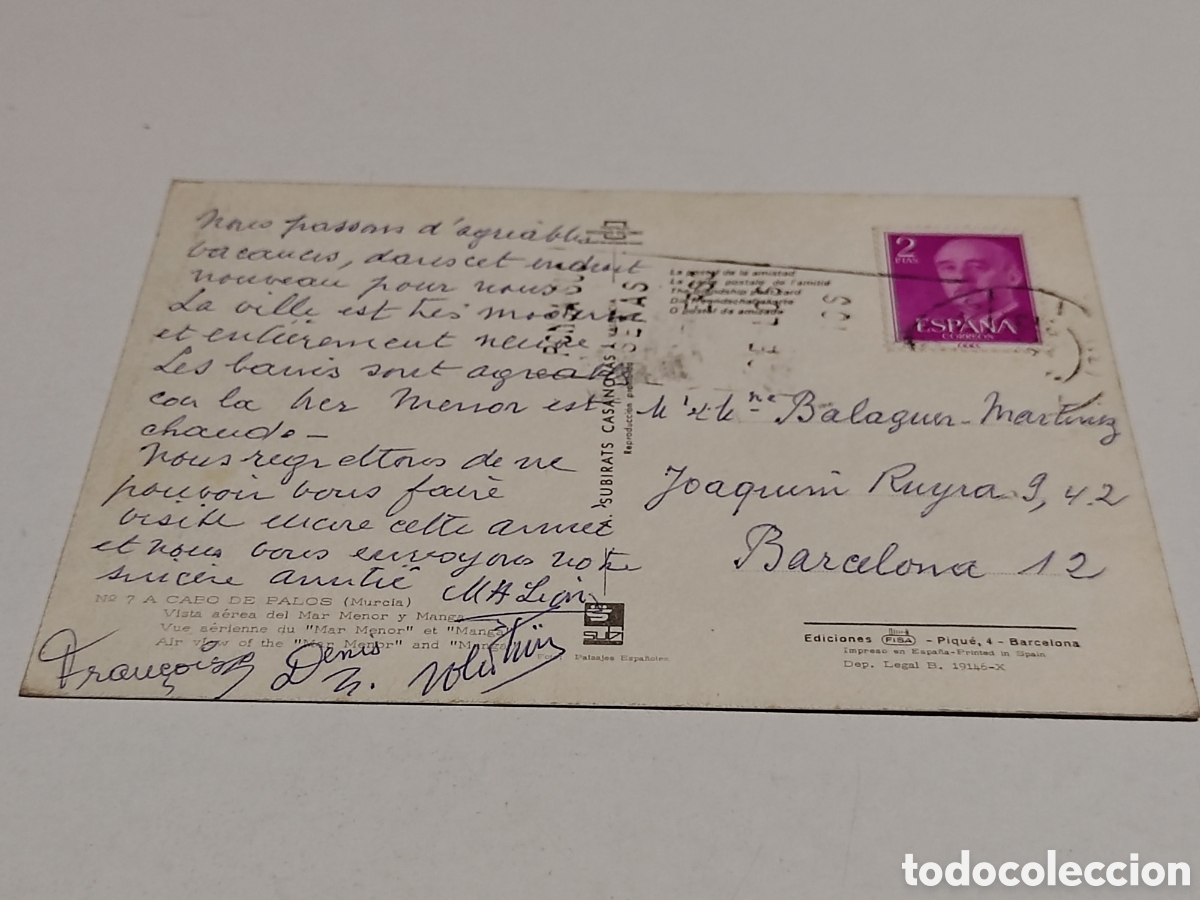 Nous passons d'agréables
vacances, dans cet endroit
nouveau pour nous
La ville est très moderne
et entièrement neuve
Les bains sont agreables
car la Mer Menor est
chaude -
Nous regrettons de ne
pouvoir vous faire
visite encore cette année
et nous vous envoyons notre
sincère amitié
Nº 7 A CABO DE PALOS (Murcia)
Vista aérea del Mar Menor y Manga
Vue aérienne du "Mar Menor" et "Manga"
Air view of the "Mar Menor" and "Manga"
Françoise Denis
Foto. Paisajes Españoles
A. SUBIRATS CASANOVAS
Reproducción
La postal de la amistad
La carte postale de l'amitié
The friendship postcard
Die Freundschaftskarte
O postal da amizade
2
PTAS
ESPAÑA
CORREOS
Balaguer-Martinez
Joaquim Ruyra 9, 4 2
Barcelona 12
Ediciones FISA - Piqué, 4 - Barcelona
Impreso en España-Printed in Spain
Dep. Legal B. 19146-X
todocoleccion